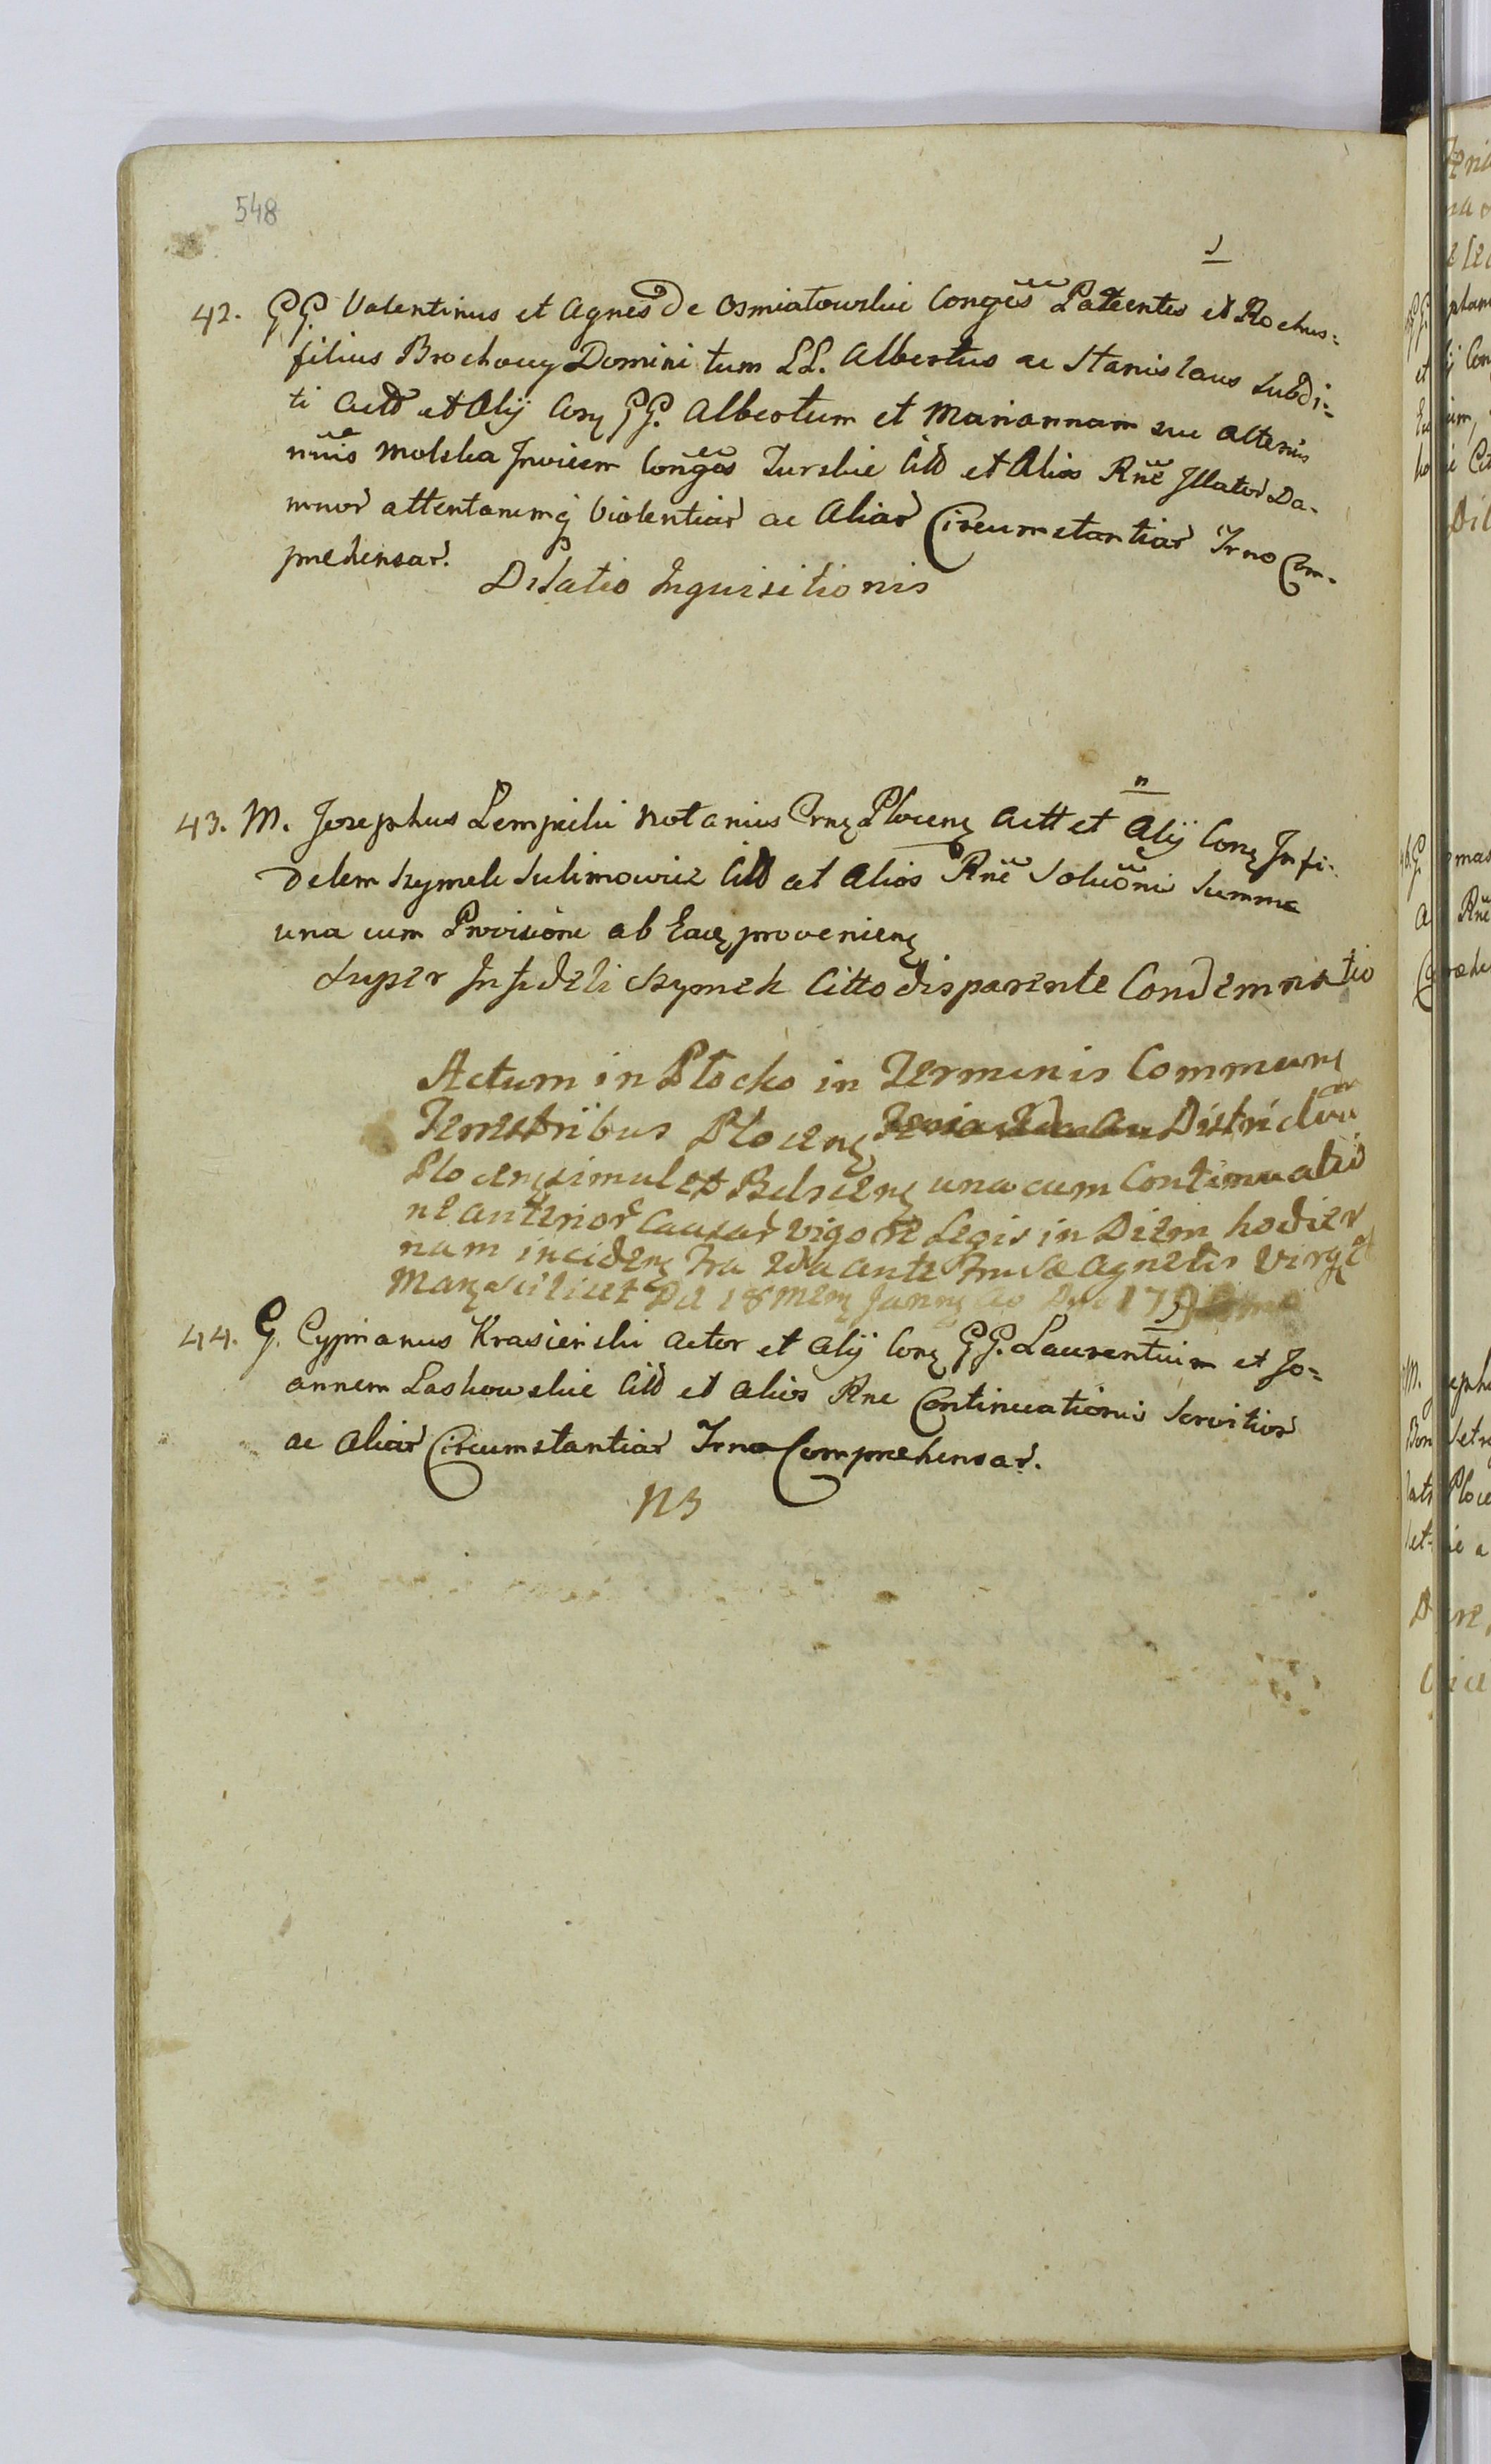 548
42. GG. Valentinus et Agnes de Osmiatowskie Conges Patrentes et Rochus=
filius Brochowy Domini tum LL. Albertus ac Stanislaus Subdi=
ti Actt et Alij Conq GG. Albertum et Mariannam eve alterius
nuis Molska Invicem Conges Turskie Citt et Alios Rne Illator Da-
mnor attentarumq Violentiar ac Aliar Circumstantiar Trno Com-
prehensar.
Dilatio Inquisitionis
n
43. M. Josephus Lempicki Notarius Trrq Plocenq Actt et Alij Conq Infi-
delem Szymek Sulimowicz Citt et Alios Rne Solutõnis Summæ
una cum Provisione ab Eadq provenienq
Super Infideli Szymek Citto disparente Condemnatio
Actum in Plocko in Terminis Communq
Terrestribus Plocenq Districtuu
Plocenq simul et Belscenq una cum Continuatio
ne anterior Causar vigore Legis in Diem hodier
nam incidenq Fra 2da ante Ftum Sæ Agnetis Virgq et
Marq scilicet Die 18 Menq Janrq Ao Dni 17
44. G. Cyprianus Krasienski Actor et Alij Conq GG. Laurentium et Jo=
annem Laskowskie Citt et Alios Rne Continuationis Servitior
ac Aliar Circumstantiar Trno Comprehensar.
NB